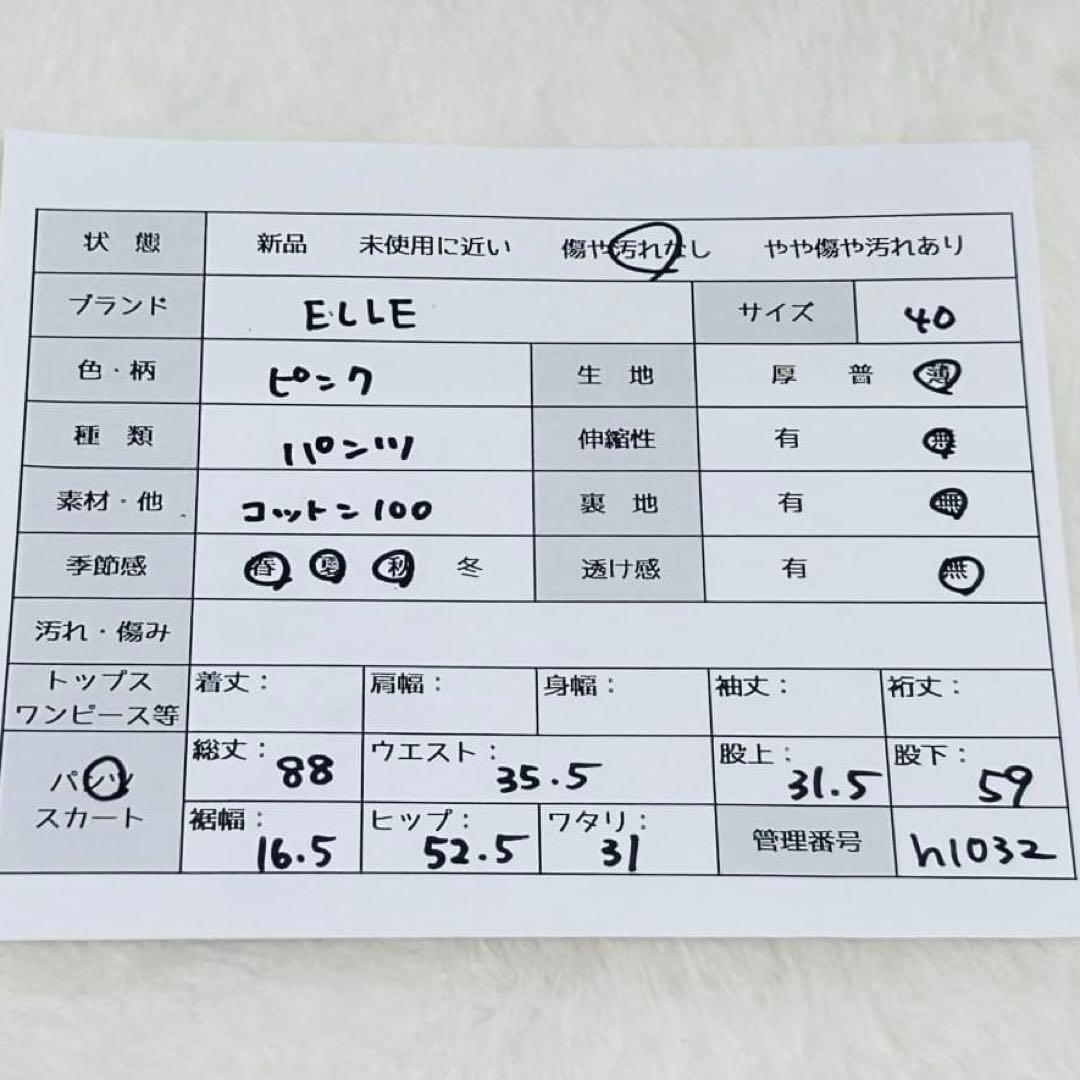 状態 新品 未使用に近い 傷や汚れなし やや傷や汚れあり
ブランド ELLE サイズ 40
色・柄 ピンク 生地 厚 普 薄
種類 パンツ 伸縮性 有 無
素材・他 コットン100 裏地 有 無
季節感 春 夏 秋 冬 透け感 有 無
汚れ・傷み
トップス
ワンピース等 着丈: 肩幅: 身幅: 袖丈: 裄丈:
パンツ
スカート
総丈:88 ウエスト:35.5 股上:31.5 股下:59
裾幅:16.5 ヒップ:52.5 ワタリ:31 管理番号 h1032